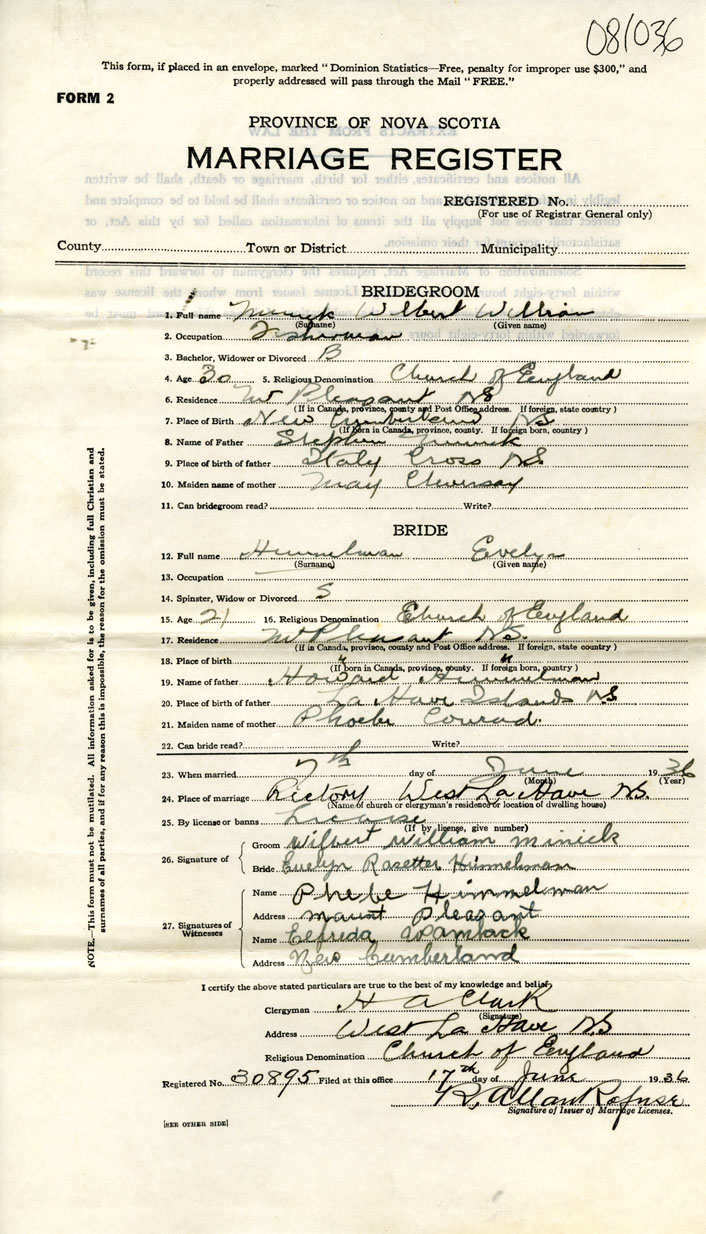 081036
This form, if placed in an envelope, marked "Dominion Statistics—Free, penalty for improper use $300," and
properly addressed will pass through the Mail "FREE."
FORM 2
PROVINCE OF NOVA SCOTIA
MARRIAGE REGISTER
REGISTERED No.
(For use of Registrar General only)
County Town or District Municipality
BRIDEGROOM
1. Full name Minick Wilbert William
(Surname) (Given name)
2. Occupation Fisherman
3. Bachelor, Widower or Divorced B
4. Age 30 5. Religious Denomination Church of England
6. Residence Mt Pleasant NS
(If in Canada, province, county and Post Office address. If foreign, state country)
7. Place of Birth New Cumberland NS
(If born in Canada, province, county. If foreign born, country)
8. Name of Father Stephen Minick
9. Place of birth of father Italy Cross NS.
10. Maiden name of mother May
11. Can bridegroom read? Write?
BRIDE
12. Full name Himmelman Evelyn
(Surname) (Given name)
13. Occupation
14. Spinster, Widow or Divorced S
15. Age 21 16. Religious Denomination Church of England
17. Residence Mt Pleasant NS.
(If in Canada, province, county and Post Office address. If foreign, state country)
18. Place of birth " "
(If born in Canada, province, county. If foreign born, country)
19. Name of father Howard Himmelman
20. Place of birth of father La Have Islands NS
21. Maiden name of mother Phoebe Conrad.
22. Can bride read? Write?
23. When married 7th day of June 1936
(Month) (Year)
24. Place of marriage Rectory West La Have NS.
(Name of church or clergyman's residence or location of dwelling house)
25. By license or banns License
(If by license, give number)
26. Signature of Groom Wilbert William Minick
Bride Evelyn Rosetter Himmelman
27. Signatures of Witnesses
Name Phebe Himmelman
Address Mount Pleasant
Name Elfreda Wamback
Address New Cumberland
I certify the above stated particulars are true to the best of my knowledge and belief,
Clergyman H A Clark
(Signature)
Address West La Have NS
Religious Denomination Church of England
Registered No. 30895 Filed at this office 17th day of June 1936
R. Allan Rafuse
Signature of Issuer of Marriage Licenses.
[SEE OTHER SIDE]
NOTE.—This form must not be mutilated. All information asked for is to be given, including full Christian and
surnames of all parties, and if for any reason this is impossible, the reason for the omission must be stated.